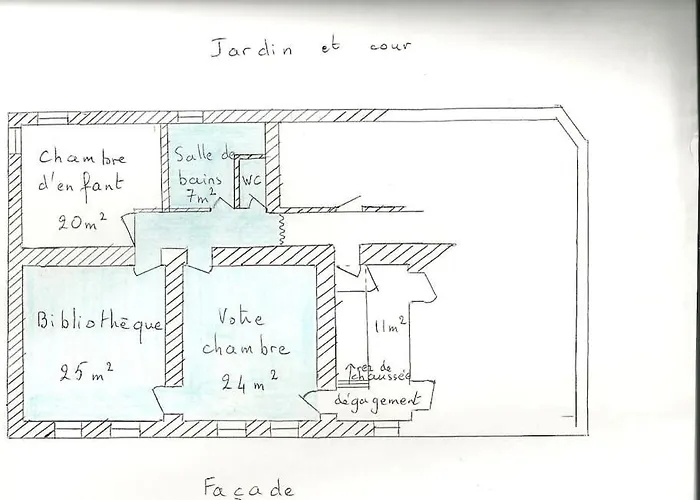 Jardin et cour
Chambre
d'enfant
20m²
Salle de
bains
7m²
WC
Bibliothèque
25m²
Votre
chambre
24m²
11m²
rez de
chaussée
dégagement
Façade